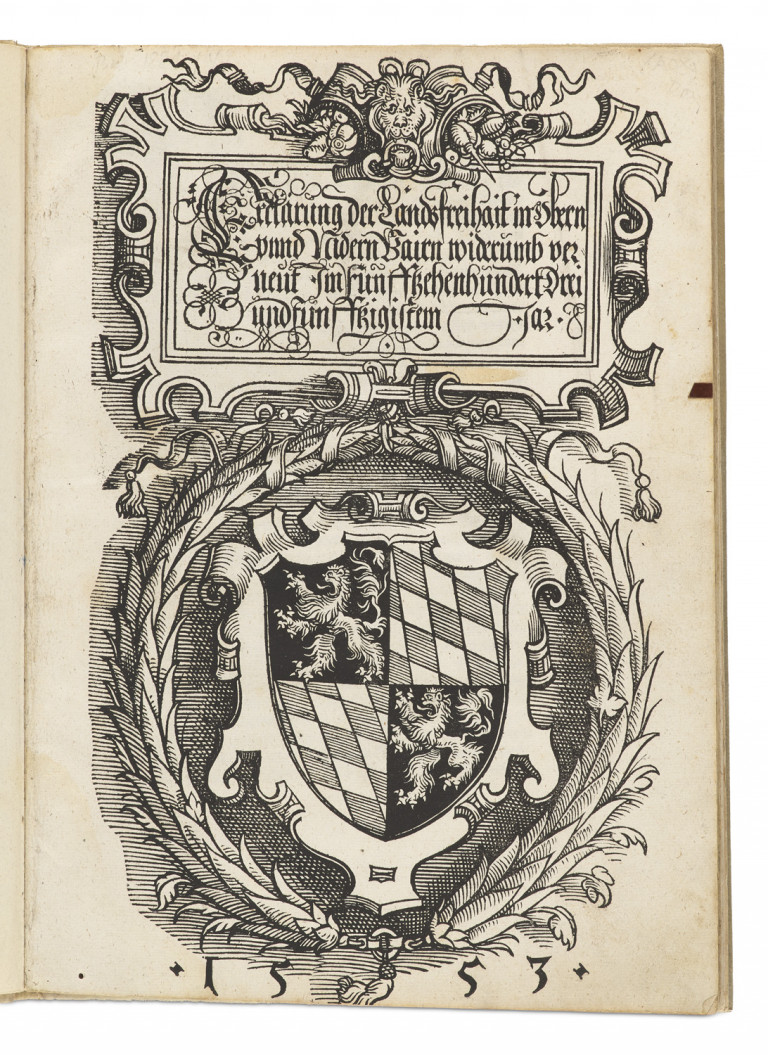 Erclärung der Landsfreihait in Obern
vnnd Nidern Baiern widerumb ver
neut Im Fünfftzehenhundert Drei
undfünfftzigistem Jar.
1553